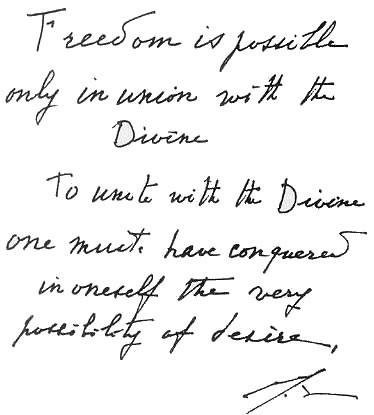 Freedom is possible
only in union with the
Divine
To unite with the Divine
one must have conquered
in oneself the very
possibility of desire.